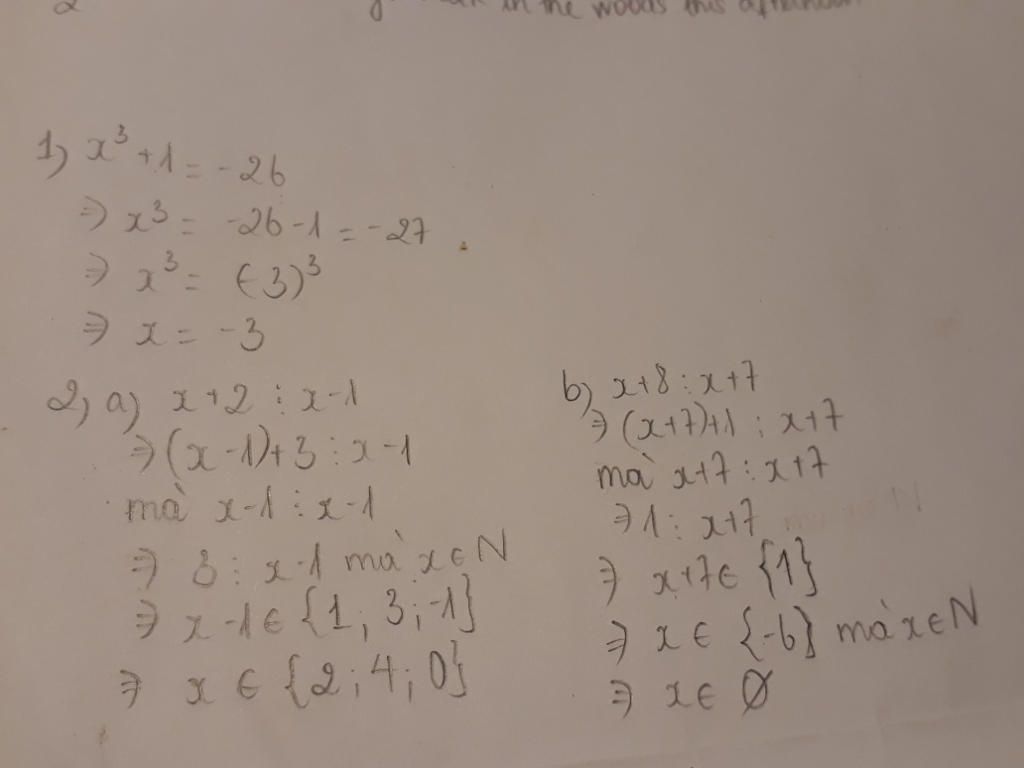 in the woods this afternoon
1) x³ + 1 = -26
⇒ x³ = -26 - 1 = -27
⇒ x³ = (-3)³
⇒ x = -3
2) a) x + 2 ⋮ x - 1
⇒ (x - 1) + 3 ⋮ x - 1
mà x - 1 ⋮ x - 1
⇒ 3 ⋮ x - 1 mà x ∈ N
⇒ x - 1 ∈ {1; 3; -1}
⇒ x ∈ {2; 4; 0}
b) x + 8 ⋮ x + 7
⇒ (x + 7) + 1 ⋮ x + 7
mà x + 7 ⋮ x + 7
⇒ 1 ⋮ x + 7
⇒ x + 7 ∈ {1}
⇒ x ∈ {-6} mà x ∈ N
⇒ x ∈ Ø